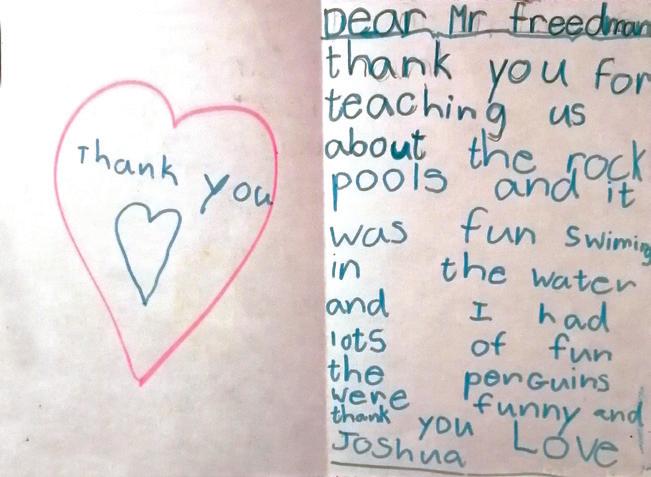 Thank you
Dear Mr freedman
thank you for
teaching us
about the rock
pools and it
was fun swiming
in the water
and I had
lots of fun
the penguins
were funny and
thank you Love
Joshua